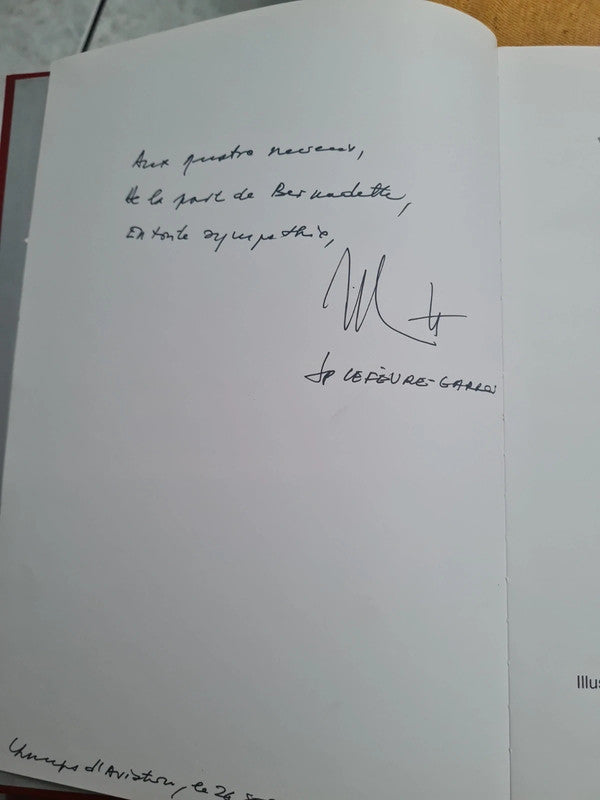 Aux quatre neveux,
De la part de Bernadette,
En toute sympathie,
JP LEFÈVRE-GARROS
Illus
Champs d'Aviation, le 26